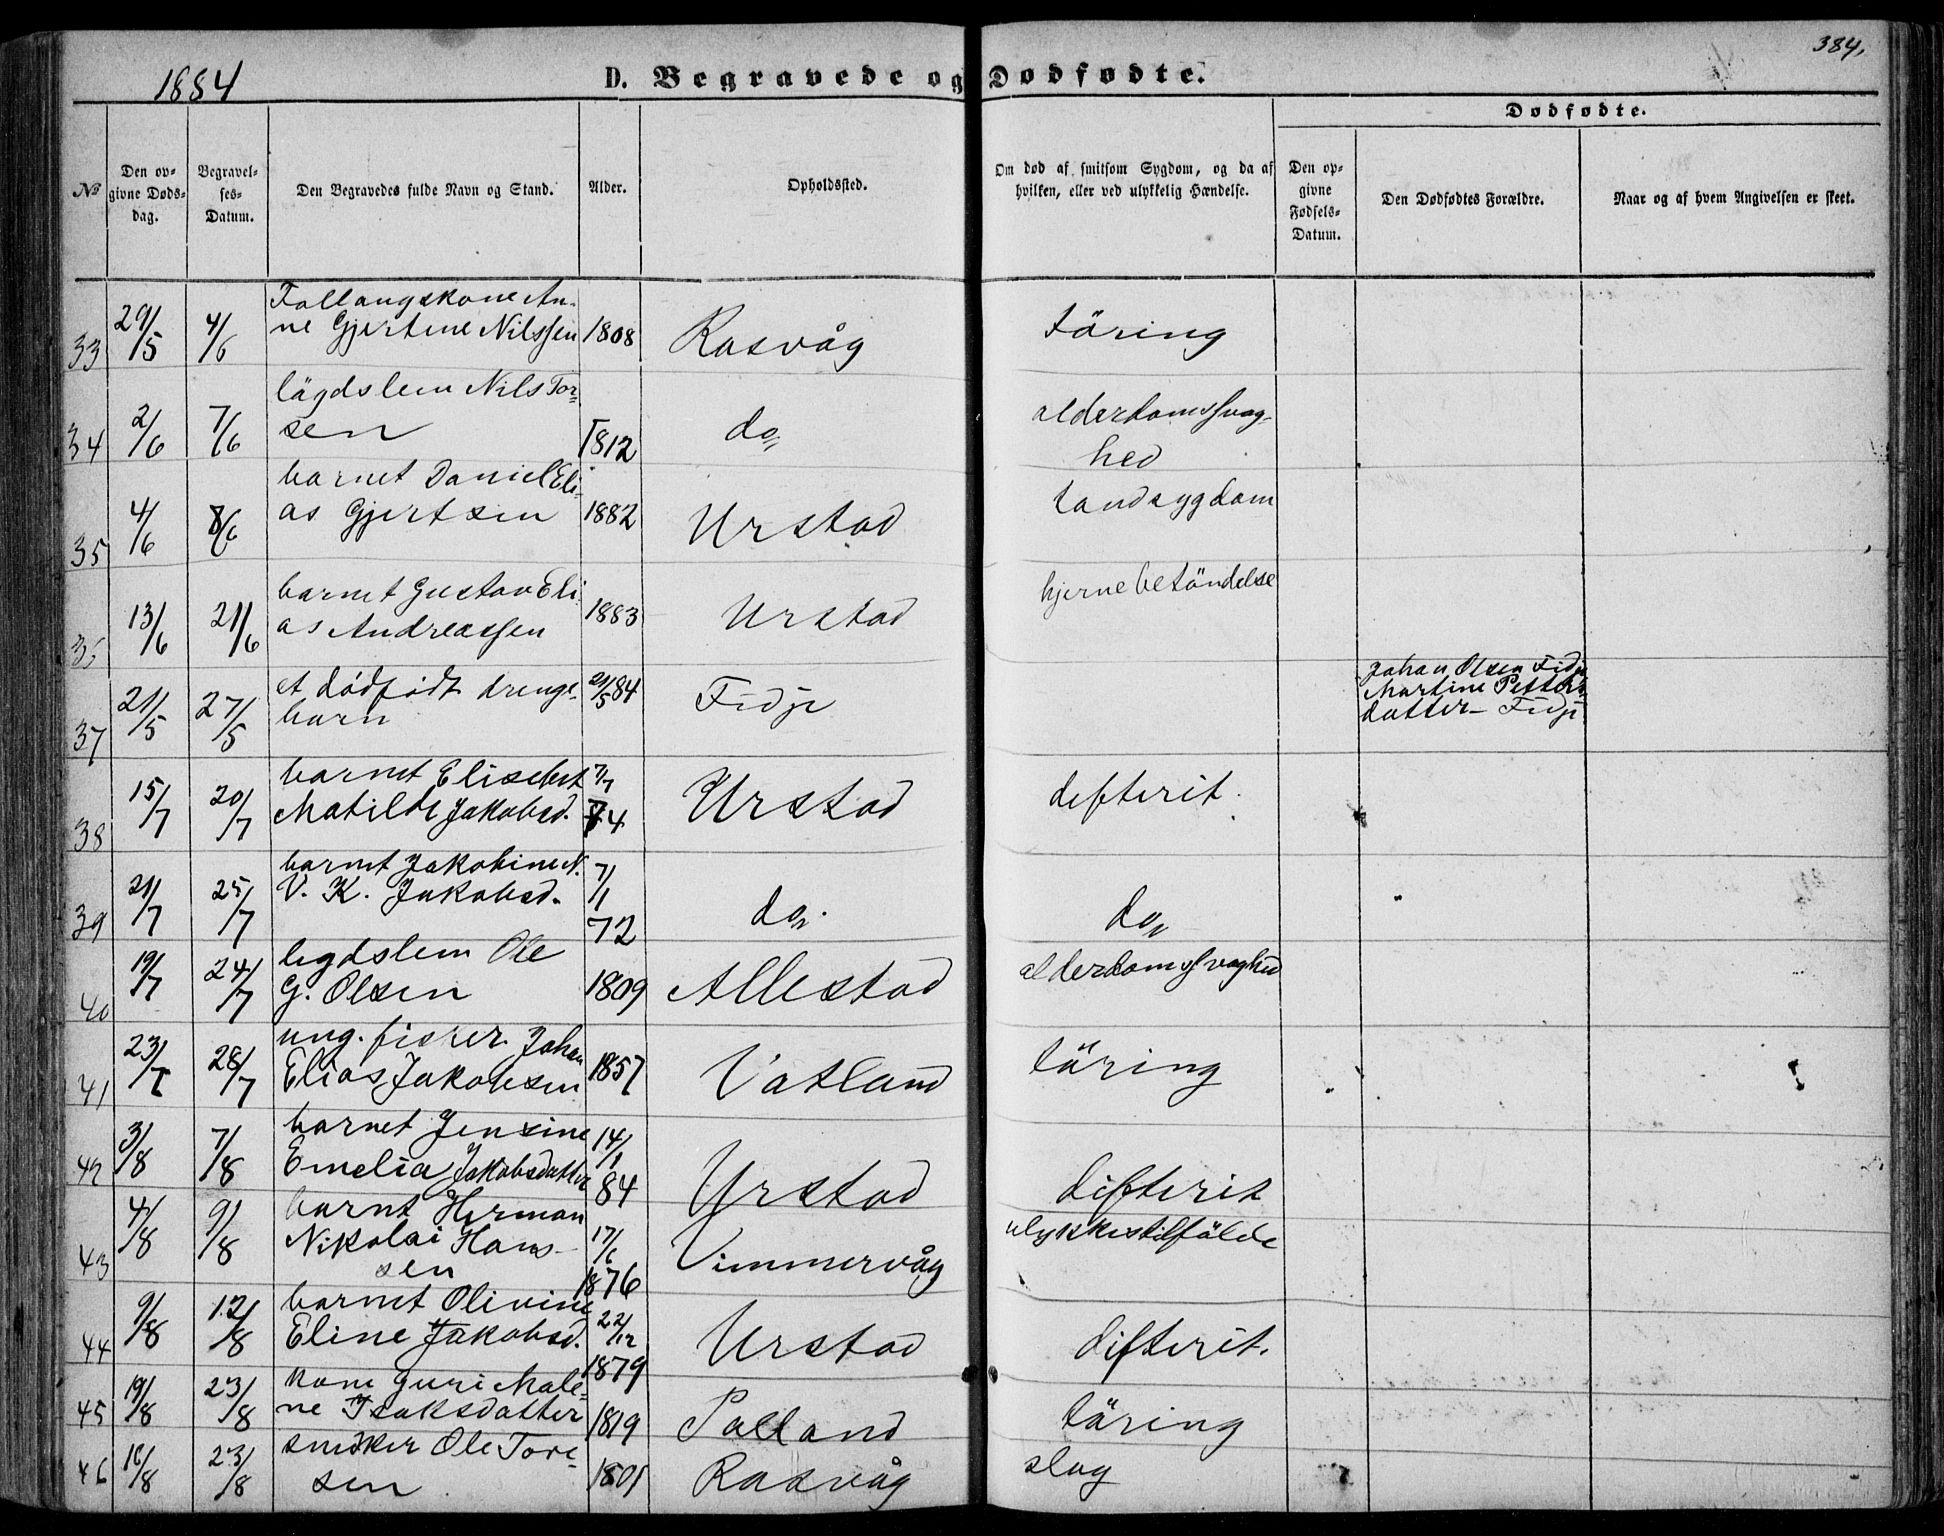 384.
1884
D. Begravede og Dødfødte.
Dødfødte.
No
Den opgivne Døds-dag.
Begravel-ses-Datum.
Den Begravedes fulde Navn og Stand.
Alder.
Opholdssted.
Om død af smitsom Sygdom, og da af hvilken, eller ved ulykkelig Hændelse.
Den op-givne Fødsels-Datum.
Den Dødfødtes Forældre.
Naar og af hvem Angivelsen er skeet.
33 29/5 4/6 An-
ne Gjertine Nilssen 1808 Rasvåg täring
34 2/6 7/6 lägdslem Nils Tor-
sen 1812 do, alderdomssvag-
hed
35 4/6 8/6 barnet Daniel Eli-
as Gjertsen 1882 Urstad tandsygdom
36 13/6 21/6 barnet Gustav Eli-
as Andreassen 1883 Urstad hjernebetöndelse
37 21/5 27/5 et dödfödt drenge-
barn 21/5 84 Fidje Johan Olsen Fidje
Martine Petters-
datter - Fidje
38 15/7 20/7 barnet Elisebert
Matilde Jakobsd. 7/7 74 Urstad defterit.
39 21/7 25/7 barnet Jakobine N.
V. K. Jakobsd. 7/1 72 do. do,
40 19/7 24/7 legdslem Ole
G. Olsen 1809 Allestad alderdomssvaghed
41 23/7 28/7 ung. fisker Johan
Elias Jakobsen 1857 Vatland täring
42 3/8 7/8 barnet Jensine
Emelia Jakobsdatter 14/1 84 Urstad difterit
43 4/8 9/8 barnet Herman
Nikolai Hans-
sen 17/6 1876 Vimmervåg ulykkestilfälde
44 9/8 12/8 barnet Olivine
Eline Jakobsd. 22/12 1879 Urstad difterit.
45 19/8 23/8 kone Guri Male-
ne Isaksdatter 1819 Salland täring
46 16/8 23/8 snekker Ole Tore-
sen 1801 Rasvåg slag